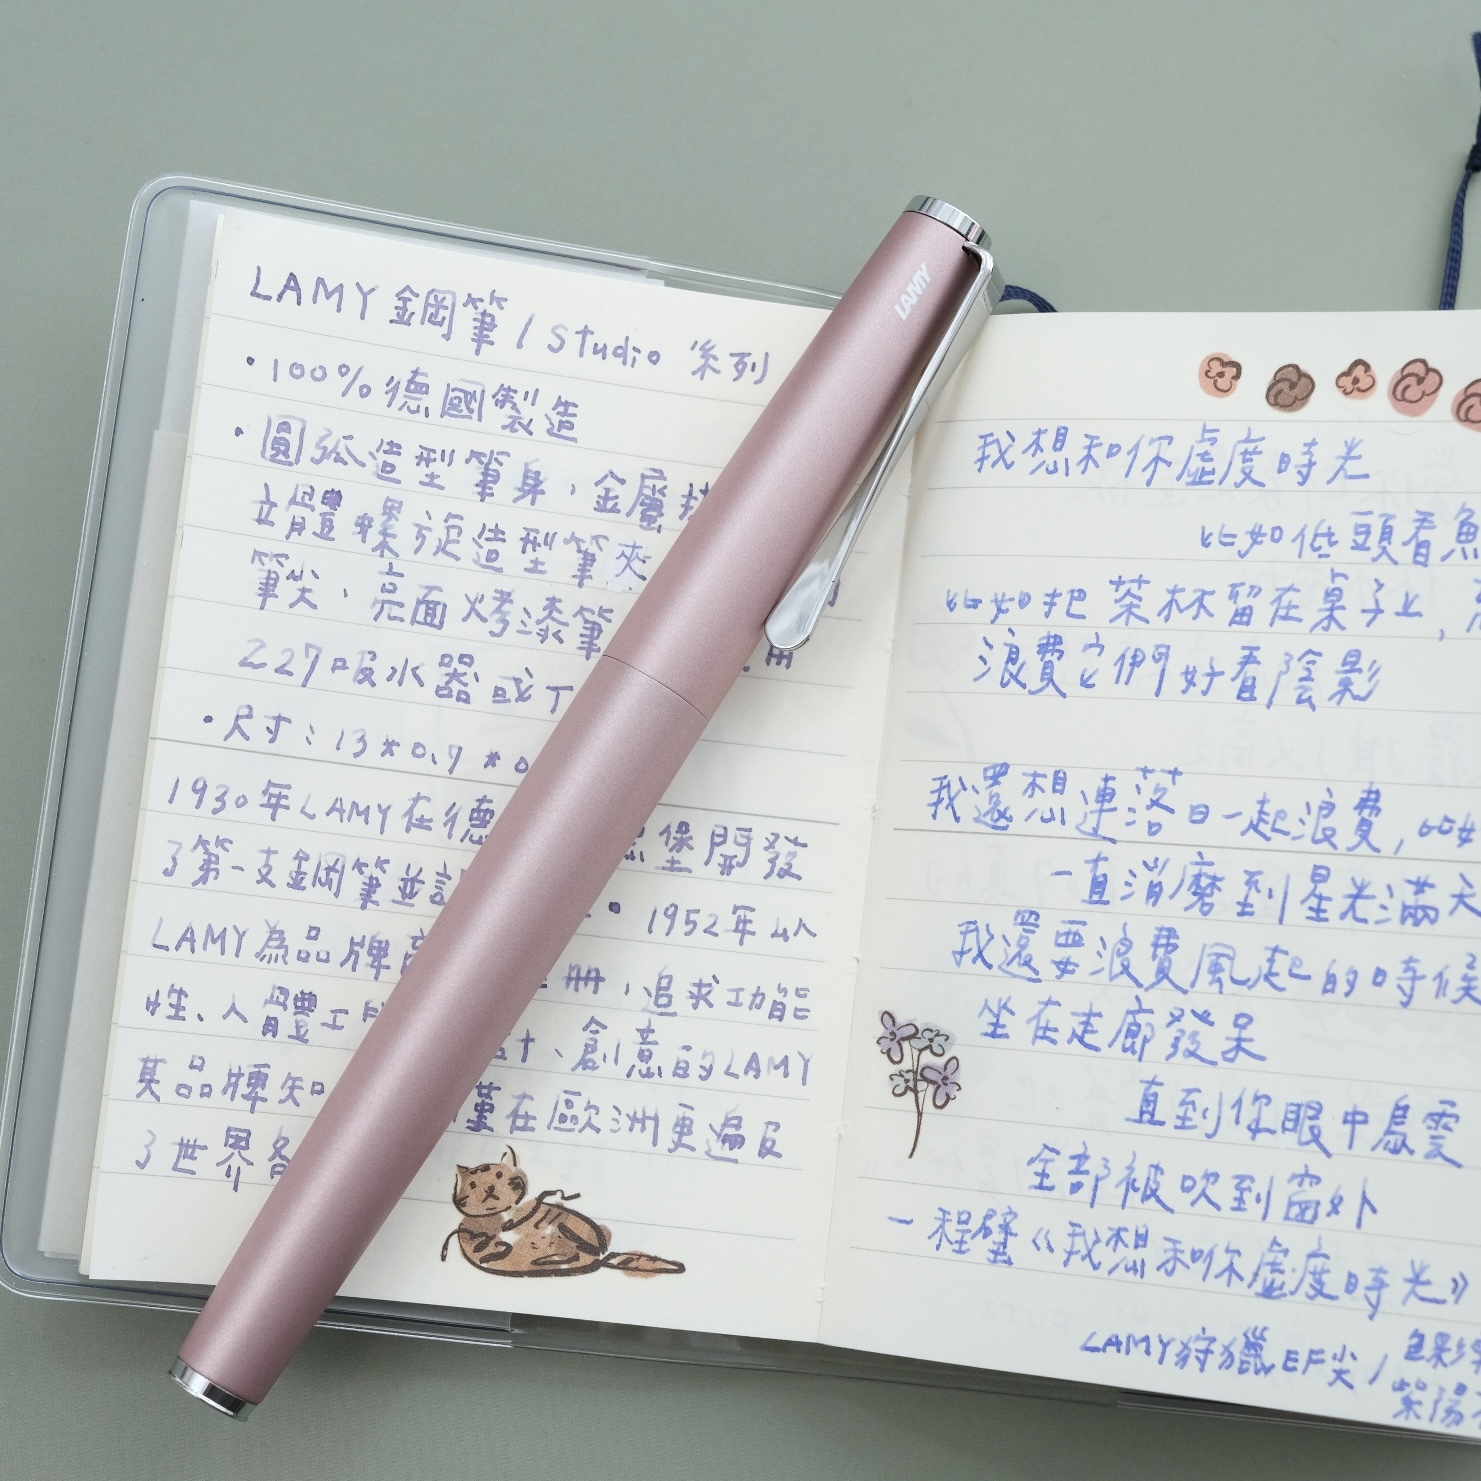 LAMY 鋼筆 / Studio 系列
・100% 德國製造
・圓弧造型筆身，金屬
立體螺旋造型筆夾
筆尖、亮面烤漆筆
Z27吸水器或T
・尺寸：13*0.9*0
1930年LAMY在德 堡開發
了第一支鋼筆並註 1952年以
LAMY為品牌 註冊，追求功能
性、人體工 計、創意的LAMY
其品牌知 僅在歐洲更遍及
了世界各
LAMY
我想和你虛度時光
比如低頭看魚
比如把茶杯留在桌子上，
浪費它們好看陰影
我還想連落日一起浪費，比如
一直消磨到星光滿天
我還要浪費風起的時候
坐在走廊發呆
直到你眼中烏雲
全部被吹到窗外
－程璧《我想和你虛度時光》
LAMY狩獵EF尖 /
紫陽